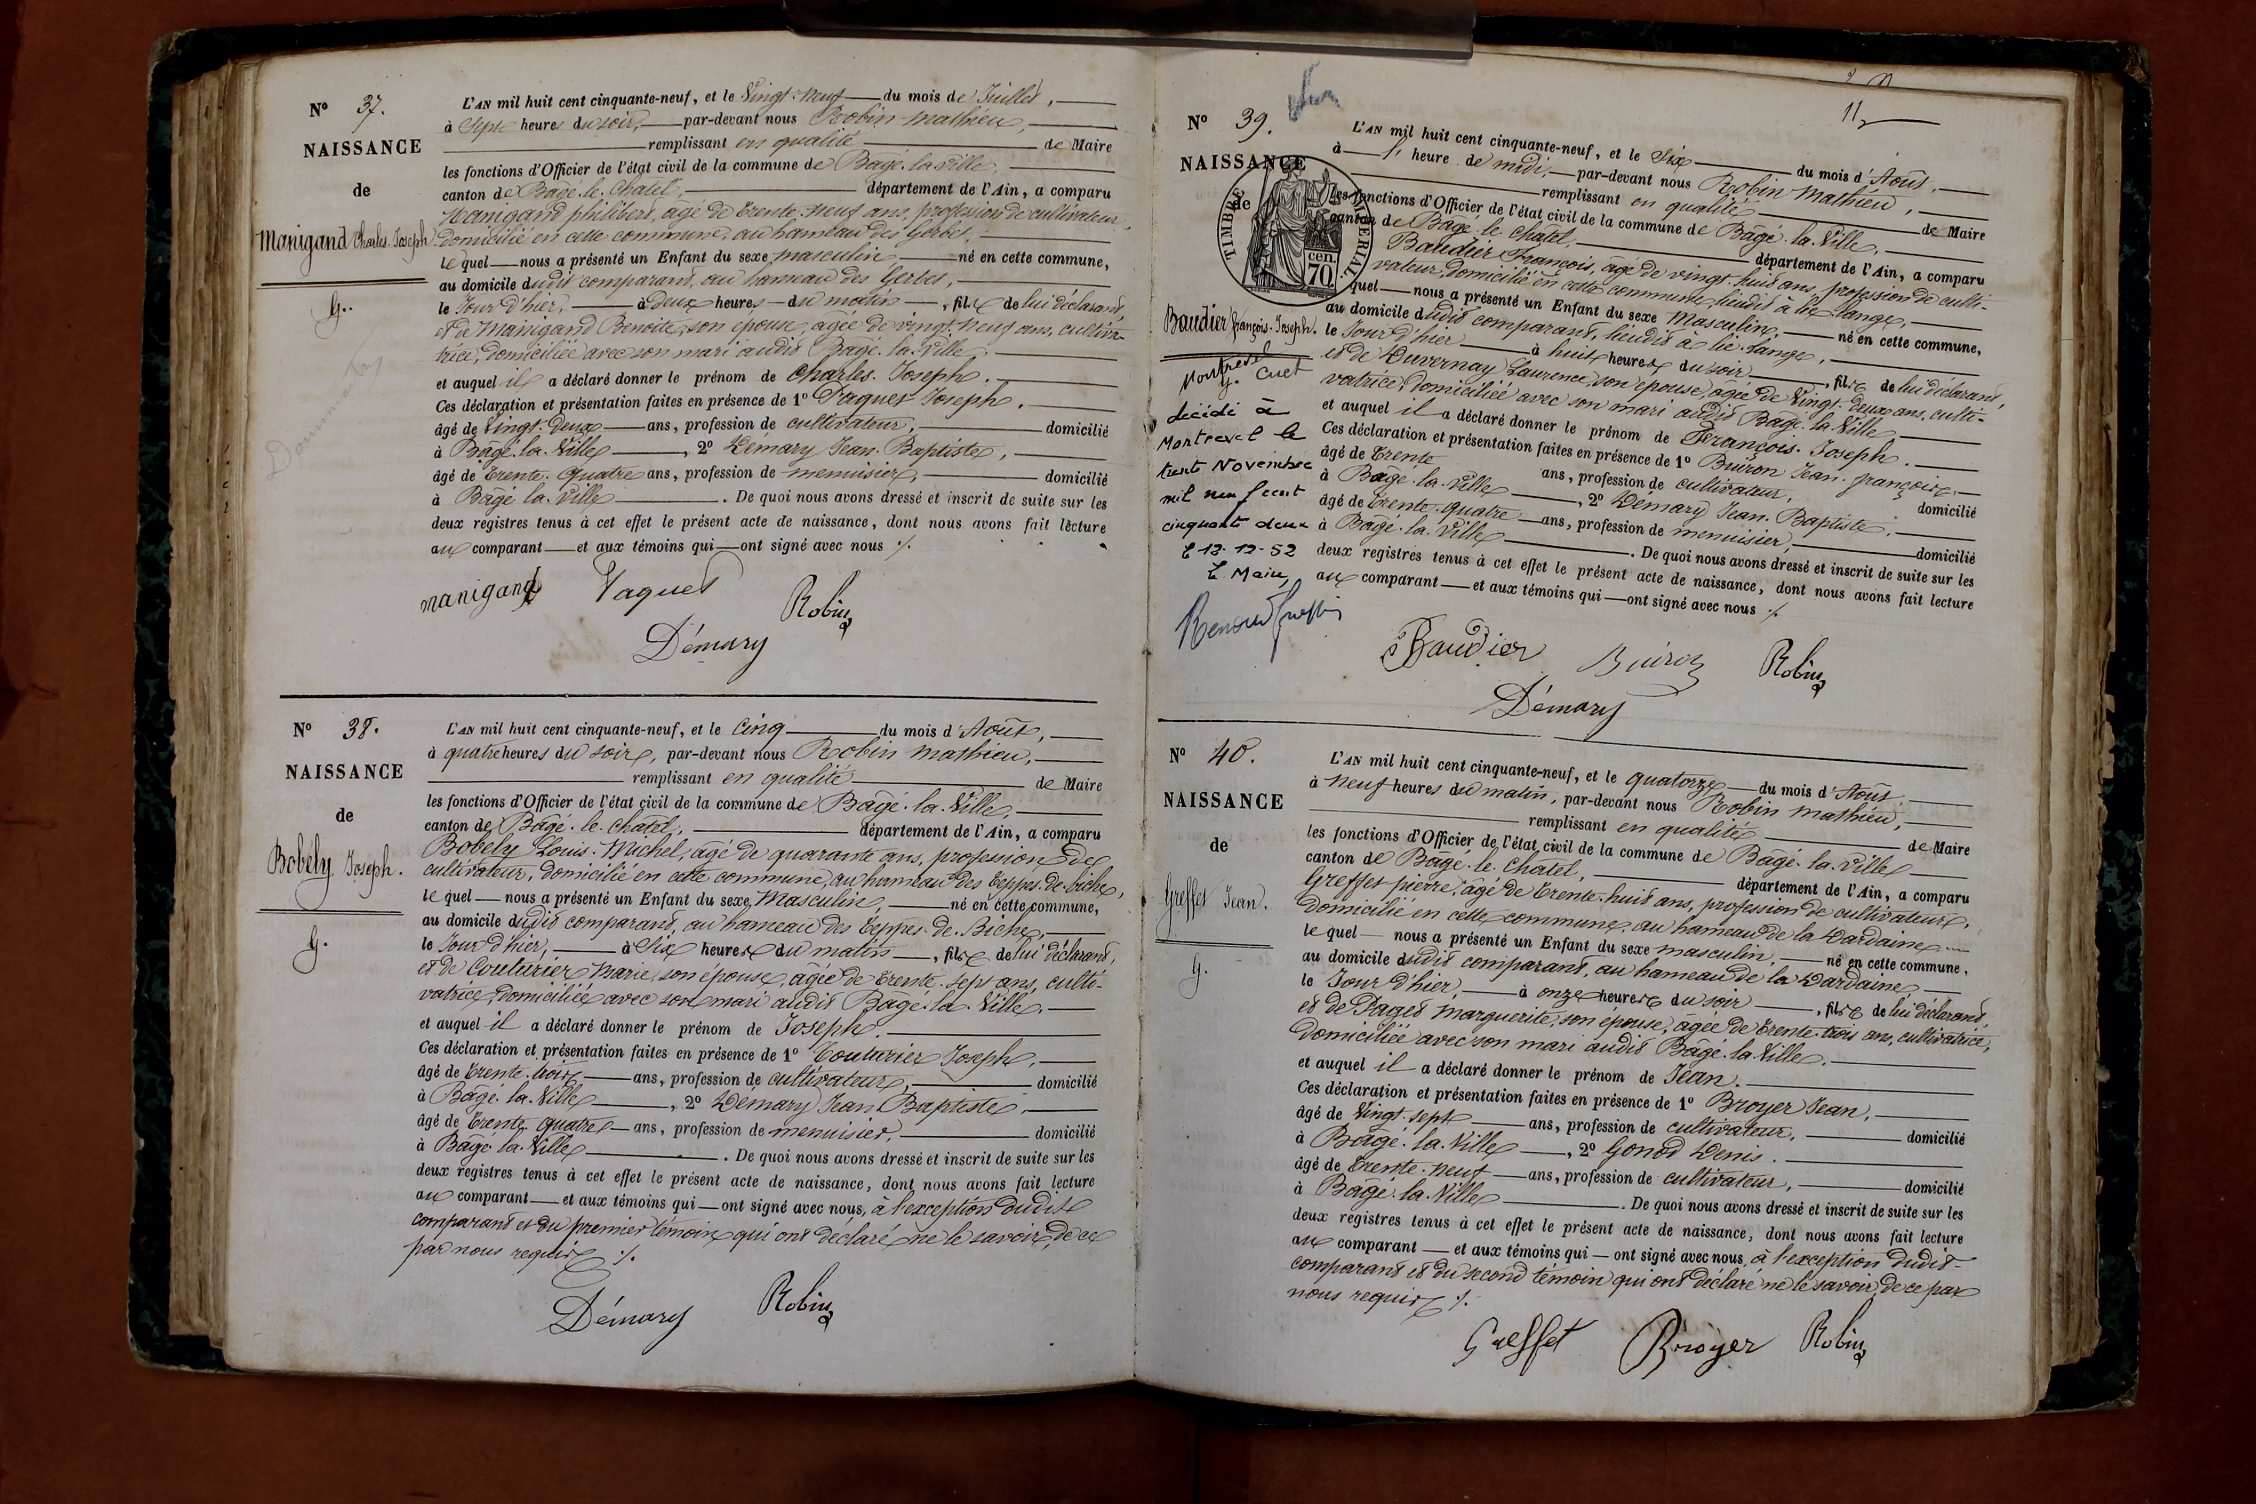 N° 37.
NAISSANCE
de
Manigand Charles. Joseph.
G.
L'AN mil huit cent cinquante-neuf, et le Vingt-neuf du mois de Juillet,
à Sept heures du soir, par-devant nous Robin Mathieu,
remplissant en qualité de Maire
les fonctions d'Officier de l'état civil de la commune de Bâgé-la-Ville,
canton de Bâgé-le-Chatel, département de l'Ain, a comparu
Manigand philibert, âgé de trente-neuf ans, profession de cultivateur,
domicilié en cette commune, au hameau des Gerbes,
le quel nous a présenté un Enfant du sexe masculin né en cette commune,
au domicile dudit comparant, au hameau des Gerbes,
le Jour d'hier, à deux heures du matin, fils de lui déclarant,
et de Manigand Benoite, son épouse, âgée de vingt-neuf ans, cultiva-
trice, domiciliée avec son mari audit Bâgé-la-Ville,
et auquel il a déclaré donner le prénom de Charles. Joseph.
Ces déclaration et présentation faites en présence de 1° Paquet Joseph,
âgé de Vingt-deux ans, profession de cultivateur, domicilié
à Bâgé-la-Ville, 2° Démary Jean-Baptiste,
âgé de trente-quatre ans, profession de menuisier, domicilié
à Bâgé-la-Ville. De quoi nous avons dressé et inscrit de suite sur les
deux registres tenus à cet effet le présent acte de naissance, dont nous avons fait lecture
au comparant et aux témoins qui ont signé avec nous ./.
manigand Paquet Robin
Démary
N° 38.
NAISSANCE
de
Bobely Joseph.
G.
L'AN mil huit cent cinquante-neuf, et le cinq du mois d'Août,
à quatre heures du soir, par-devant nous Robin Mathieu,
remplissant en qualité de Maire
les fonctions d'Officier de l'état civil de la commune de Bâgé-la-Ville,
canton de Bâgé-le-Chatel, département de l'Ain, a comparu
Bobely Louis-Michel, âgé de quarante ans, profession de
cultivateur, domicilié en cette commune, au hameau des Teppes-de-biche,
le quel nous a présenté un Enfant du sexe Masculin, né en cette commune,
au domicile dudit comparant, au hameau des Teppes-de-Biche,
le Jour d'hier, à Six heures du matin, fils de lui déclarant,
et de Couturier Marie, son épouse, âgée de trente-sept ans, culti-
vatrice, domiciliée avec son mari audit Bâgé-la-Ville,
et auquel il a déclaré donner le prénom de Joseph.
Ces déclaration et présentation faites en présence de 1° Couturier Joseph,
âgé de trente-trois ans, profession de cultivateur, domicilié
à Bâgé-la-Ville, 2° Démary Jean Baptiste,
âgé de trente-quatre ans, profession de menuisier, domicilié
à Bâgé-la-Ville. De quoi nous avons dressé et inscrit de suite sur les
deux registres tenus à cet effet le présent acte de naissance, dont nous avons fait lecture
au comparant et aux témoins qui ont signé avec nous, à l'exception dudit
comparant et du premier témoin qui ont déclaré ne le savoir, de ce
par nous requis ./.
Démary Robin
11
N° 39.
NAISSANCE
de
TIMBRE IMPERIAL
70 cen.
Baudier françois-Joseph.
Montrevel
G. Cuet
décédé à
Montrevel le
trente Novembre
mil neuf cent
cinquante deux
L 13-12-52
L Maire,
L'AN mil huit cent cinquante-neuf, et le Six du mois d'Août,
à l' heure de midi, par-devant nous Robin Mathieu,
remplissant en qualité de Maire
les fonctions d'Officier de l'état civil de la commune de Bâgé-la-Ville,
canton de Bâgé-le-Châtel, département de l'Ain, a comparu
Baudier François, âgé de vingt-huit ans, profession de culti-
vateur, domicilié en cette commune, lieudit à lie-Lange,
quel nous a présenté un Enfant du sexe Masculin, né en cette commune,
au domicile dudit comparant, lieudit à lie-Lange,
le Jour d'hier à huit heures du soir, fils de lui déclarant,
et de Duvernay Laurence, son épouse, âgée de Vingt-deux ans, culti-
vatrice, domiciliée avec son mari audit Bâgé-la-Ville
et auquel il a déclaré donner le prénom de François-Joseph.
Ces déclaration et présentation faites en présence de 1° Buiron Jean-françois,
âgé de trente ans, profession de cultivateur, domicilié
à Bâgé-la-Ville, 2° Démary Jean-Baptiste,
âgé de trente-quatre ans, profession de menuisier, domicilié
à Bâgé-la-Ville. De quoi nous avons dressé et inscrit de suite sur les
deux registres tenus à cet effet le présent acte de naissance, dont nous avons fait lecture
au comparant et aux témoins qui ont signé avec nous ./.
Baudier Buiron Robin
Démary
N° 40.
NAISSANCE
de
Greffet Jean.
G.
L'AN mil huit cent cinquante-neuf, et le quatorze du mois d'Août
à neuf heures du matin, par-devant nous Robin Mathieu,
remplissant en qualité de Maire
les fonctions d'Officier de l'état civil de la commune de Bâgé-la-Ville
canton de Bâgé-le-Chatel, département de l'Ain, a comparu
Greffet pierre, âgé de trente-huit ans, profession de cultivateur,
domicilié en cette commune, au hameau de la Dardaine
le quel nous a présenté un Enfant du sexe masculin, né en cette commune,
au domicile dudit comparant, au hameau de la Dardaine,
le Jour d'hier, à onze heures du soir, fils de lui déclarant,
et de Paget Marguerite, son épouse, âgée de trente-trois ans, cultivatrice,
domiciliée avec son mari audit Bâgé-la-Ville.
et auquel il a déclaré donner le prénom de Jean.
Ces déclaration et présentation faites en présence de 1° Broyer Jean,
âgé de Vingt-sept ans, profession de cultivateur, domicilié
à Bâgé-la-Ville, 2° Gonod Denis.
âgé de trente-neuf ans, profession de cultivateur, domicilié
à Bâgé-la-Ville. De quoi nous avons dressé et inscrit de suite sur les
deux registres tenus à cet effet le présent acte de naissance, dont nous avons fait lecture
au comparant et aux témoins qui ont signé avec nous, à l'exception dudit
comparant et du second témoin qui ont déclaré ne le savoir, de ce par
nous requis ./.
Greffet Broyer Robin